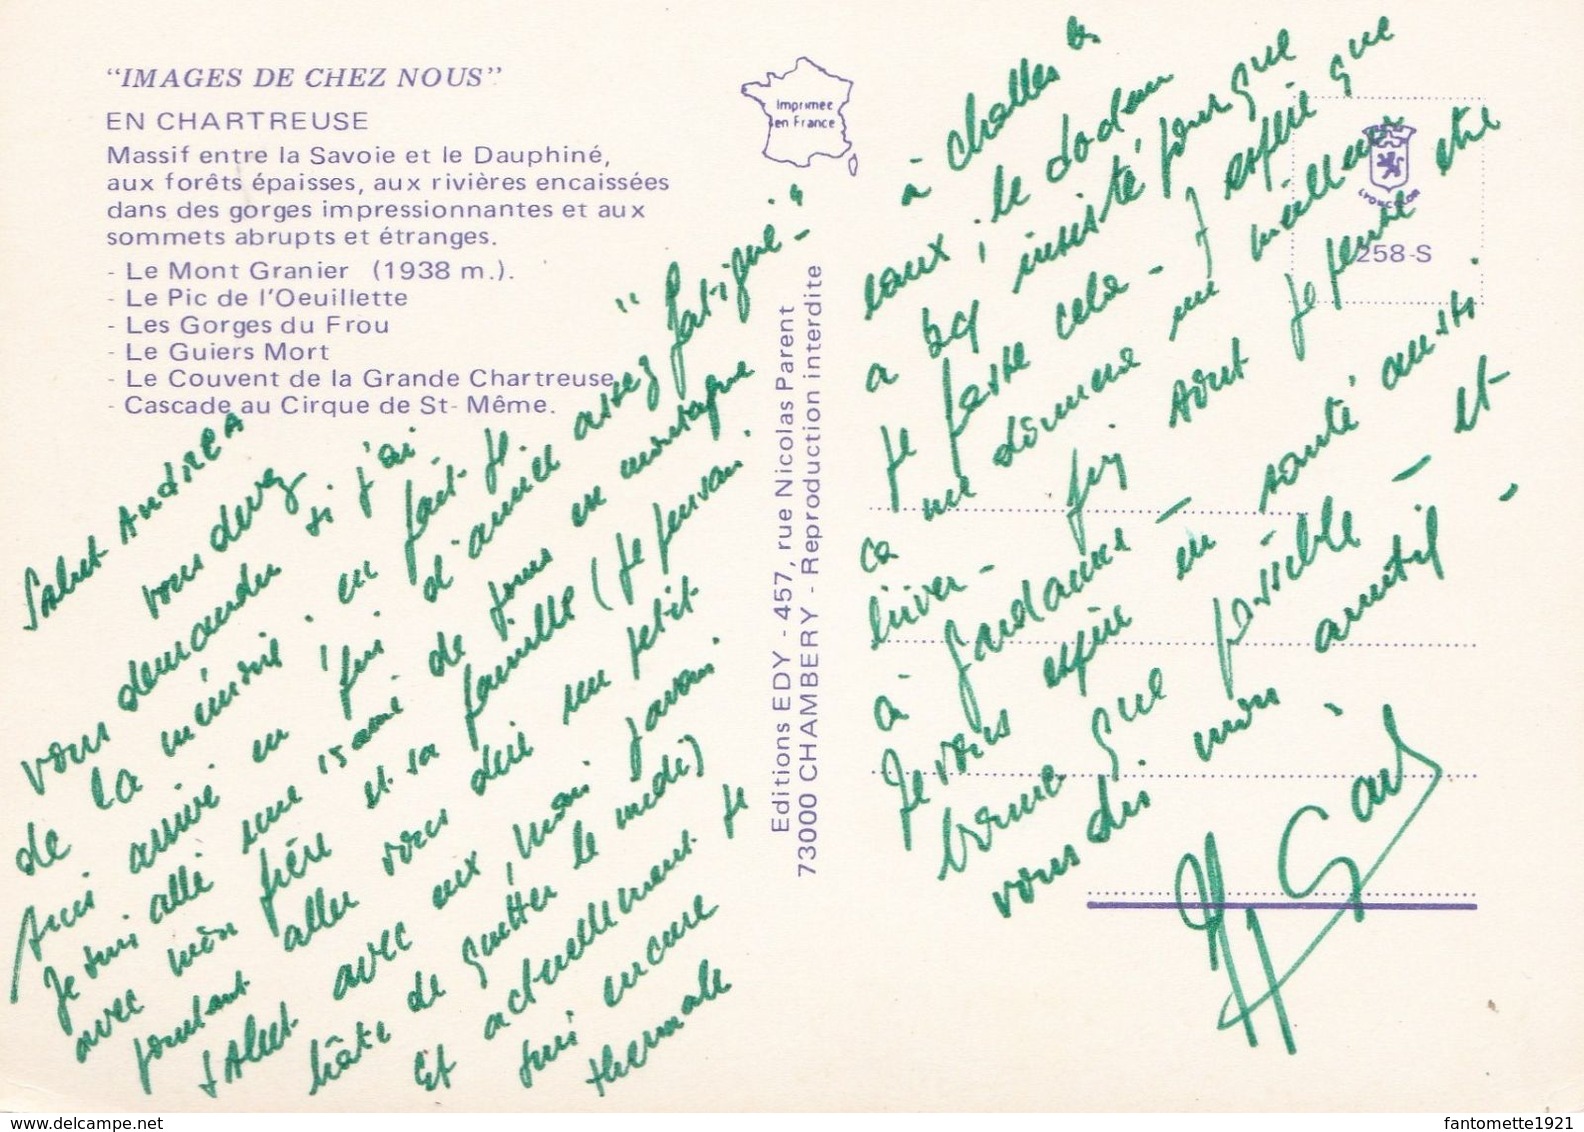 "IMAGES DE CHEZ NOUS"
EN CHARTREUSE
Massif entre la Savoie et le Dauphiné,
aux forêts épaisses, aux rivières encaissées
dans des gorges impressionnantes et aux
sommets abrupts et étranges.
- Le Mont Granier (1938 m.).
- Le Pic de l'Oeuillette
- Les Gorges du Frou
- Le Guiers Mort
- Le Couvent de la Grande Chartreuse
- Cascade au Cirque de St-Même.
Imprimée
en France
Editions EDY - 457, rue Nicolas Parent
73000 CHAMBERY - Reproduction interdite
LYONCOLOR
258-S
Salut Andrea
vous devez
vous demander si j'ai
de la mémoire ; en fait je
suis arrivé en d'année assez "fatigué" -
Je suis allé une de jours en montagne
avec mon frère et sa famille (je pensai
pourtant aller vous dire un petit
salut avec eux, mais j'avais
hâte de quitter le midi)
Et actuellement je
suis encore
thermale
à Challes les
eaux ; le
a insisté pour que
je fasse cela - J'espère que
ça me donnera un meilleur
hiver - je pense être
à Jardanne - sont
Je vous espère en santé aussi
bonne que possible - et
vous dis mon amitié -
fantomette1921
www.delcampe.net